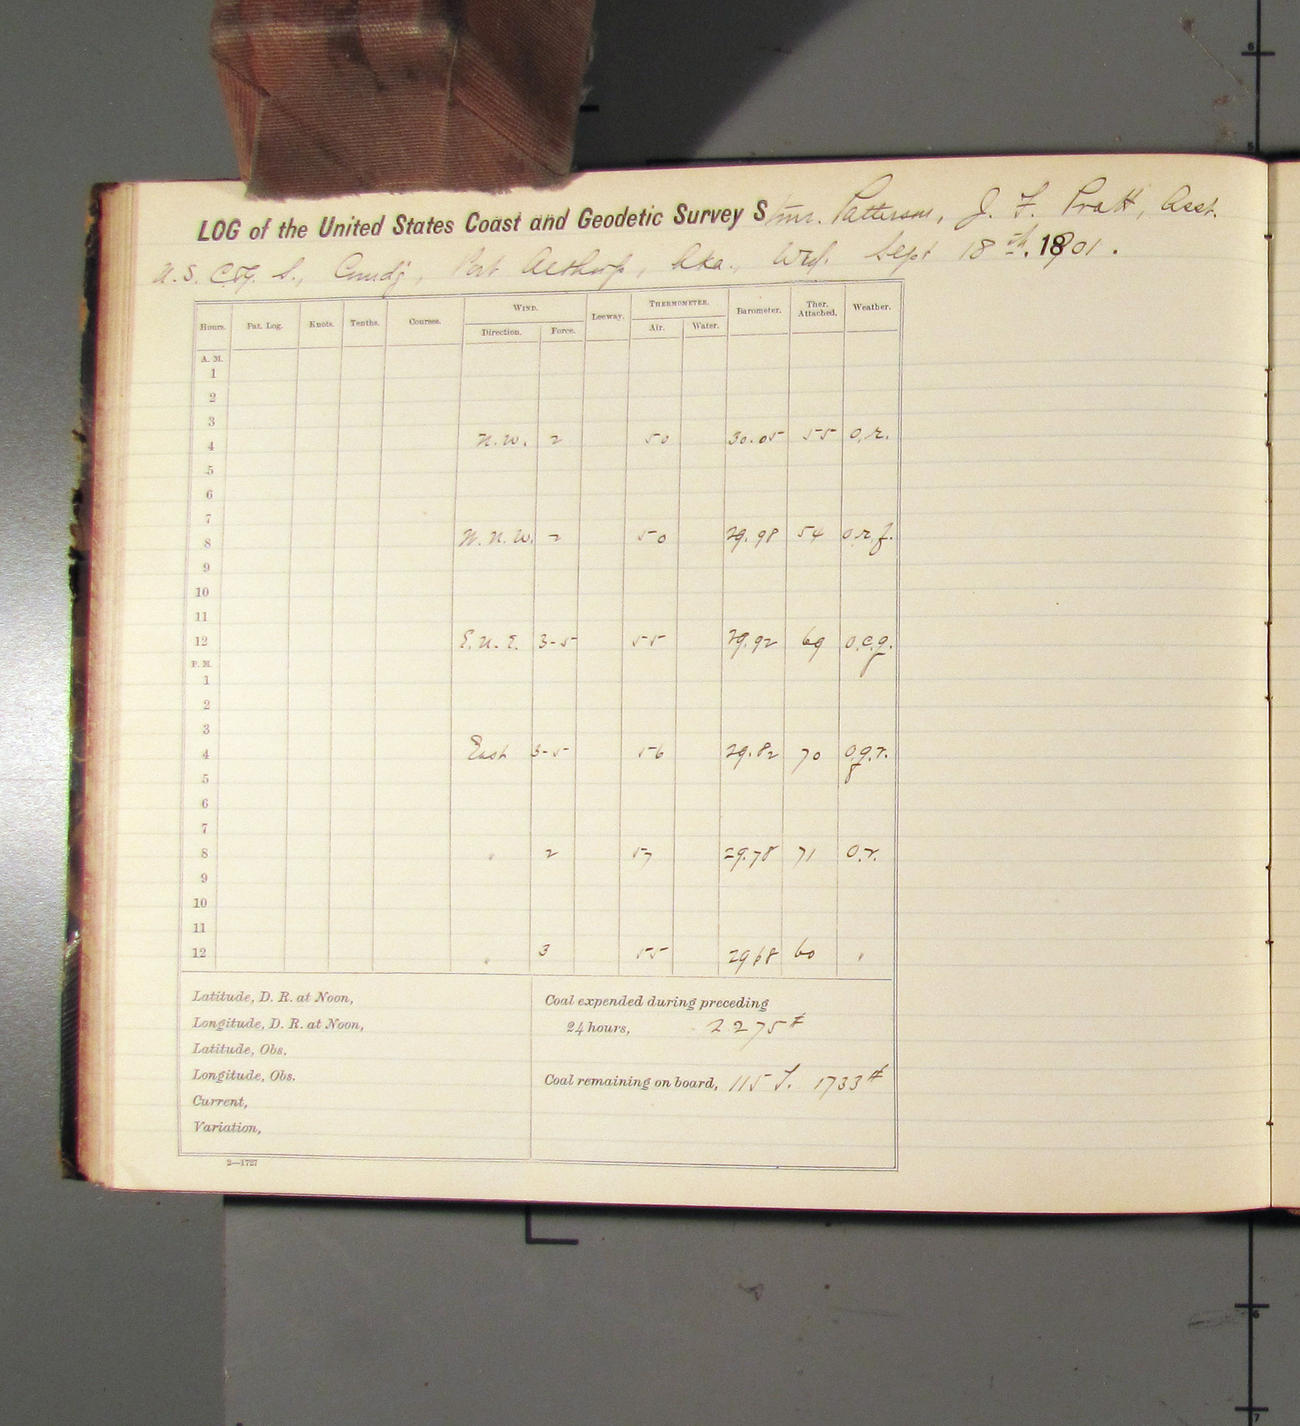 LOG of the United States Coast and Geodetic Survey Stmr. Patterson, J. F. Pratt, Asst.
U.S. C & G. S., Comdg, Port Althorp, Aka., Wed. Sept 18th. 1901.
Hours. Pat. Log. Knots. Tenths. Courses. WIND. Leeway. THERMOMETER. Barometer. Ther. Attached. Weather.
Direction. Force. Air. Water.
A. M.
1
2
3
4 N.W. 2 50 30.05 55 o.r.
5
6
7
8 N.N.W. 2 50 29.98 54 o.r.f.
9
10
11
12 E.N.E. 3-5 55 29.92 69 o.c.q.
P. M.
1
2
3
4 East 3-5 56 29.82 70 o.q.r.
5
6
7
8 " 2 57 29.78 71 o.r.
9
10
11
12 " 3 55 2968 60 "
Latitude, D. R. at Noon,
Longitude, D. R. at Noon,
Latitude, Obs.
Longitude, Obs.
Current,
Variation,
Coal expended during preceding
24 hours, 2275#
Coal remaining on board, 115 T. 1733#
2—1727
6
5
6
7